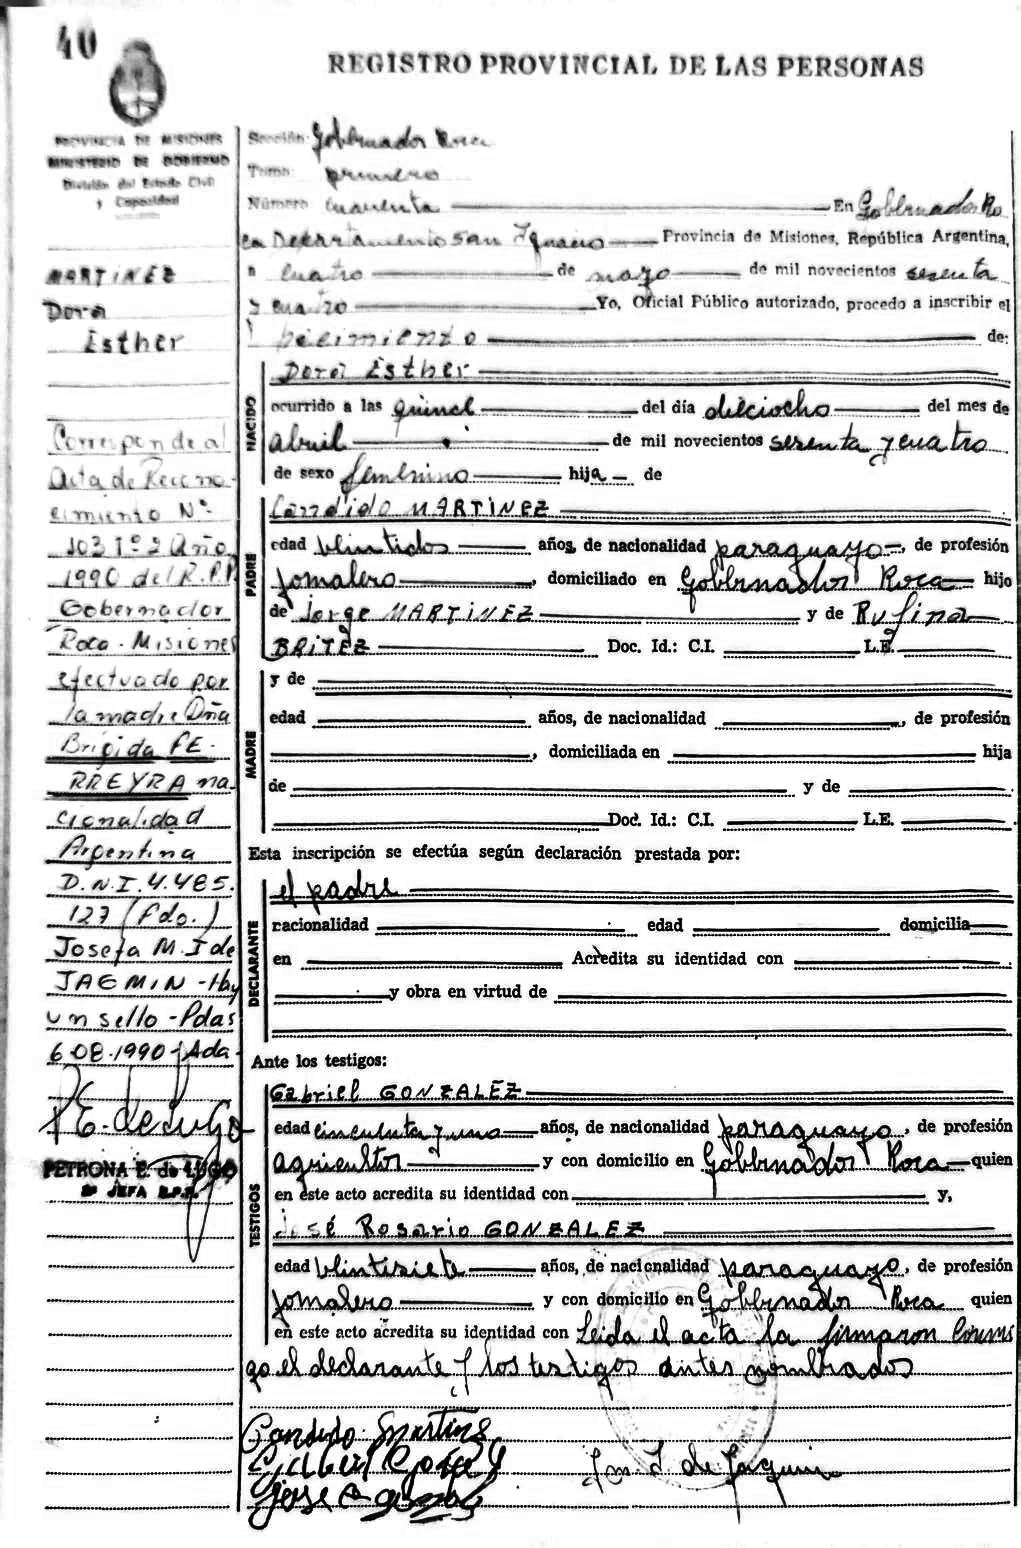 40
REGISTRO PROVINCIAL DE LAS PERSONAS
PROVINCIA DE MISIONES
MINISTERIO DE GOBIERNO
División del Estado Civil
y Capacidad
MARTINEZ
Dora
Esther
Corresponde al
Acta de Recono-
cimiento Nº
103 1º 2 Año
1990 del R.P.P
Gobernador
Roca - Misiones
efectuado por
la madre Dña
Brigida FE-
RREYRA na-
cionalidad
Argentina
D.N.I. 4.485.
127 (Fdo.)
Josefa M. I de
JAGMIN - Hay
un sello - Pdas
6-08-1990
PETRONA E. de LUGO
JEFA R.P.P.
Sección: Gobernador Roca
Tomo: primero
Número cuarenta En Gobernador Ro
ca Departamento San Ignacio Provincia de Misiones, República Argentina,
a cuatro de mayo de mil novecientos sesenta
y cuatro Yo, Oficial Público autorizado, procedo a inscribir el
nacimiento de:
NACIDO
Dora Esther
ocurrido a las quince del día dieciocho del mes de
abril de mil novecientos sesenta y cuatro
de sexo femenino hija de
PADRE
Candido MARTINEZ
edad veintidos años, de nacionalidad paraguayo, de profesión
jornalero, domiciliado en Gobernador Roca hijo
de Jorge MARTINEZ y de Rufina
BRITEZ Doc. Id.: C.I. L.E.
MADRE
y de
edad años, de nacionalidad , de profesión
, domiciliada en hija
de y de
Doc. Id.: C.I. L.E.
Esta inscripción se efectúa según declaración prestada por:
DECLARANTE
el padre
nacionalidad edad domicilia
en Acredita su identidad con
y obra en virtud de
Ante los testigos:
TESTIGOS
Gabriel GONZALEZ
edad cincuenta y uno años, de nacionalidad paraguayo, de profesión
agricultor y con domicilio en Gobernador Roca quien
en este acto acredita su identidad con y,
José Rosario GONZALEZ
edad veintisiete años, de nacionalidad paraguayo, de profesión
jornalero y con domicilio en Gobernador Roca quien
en este acto acredita su identidad con Leida el acta la firmaron conmi
go el declarante y los testigos antes nombrados
Candido Martines